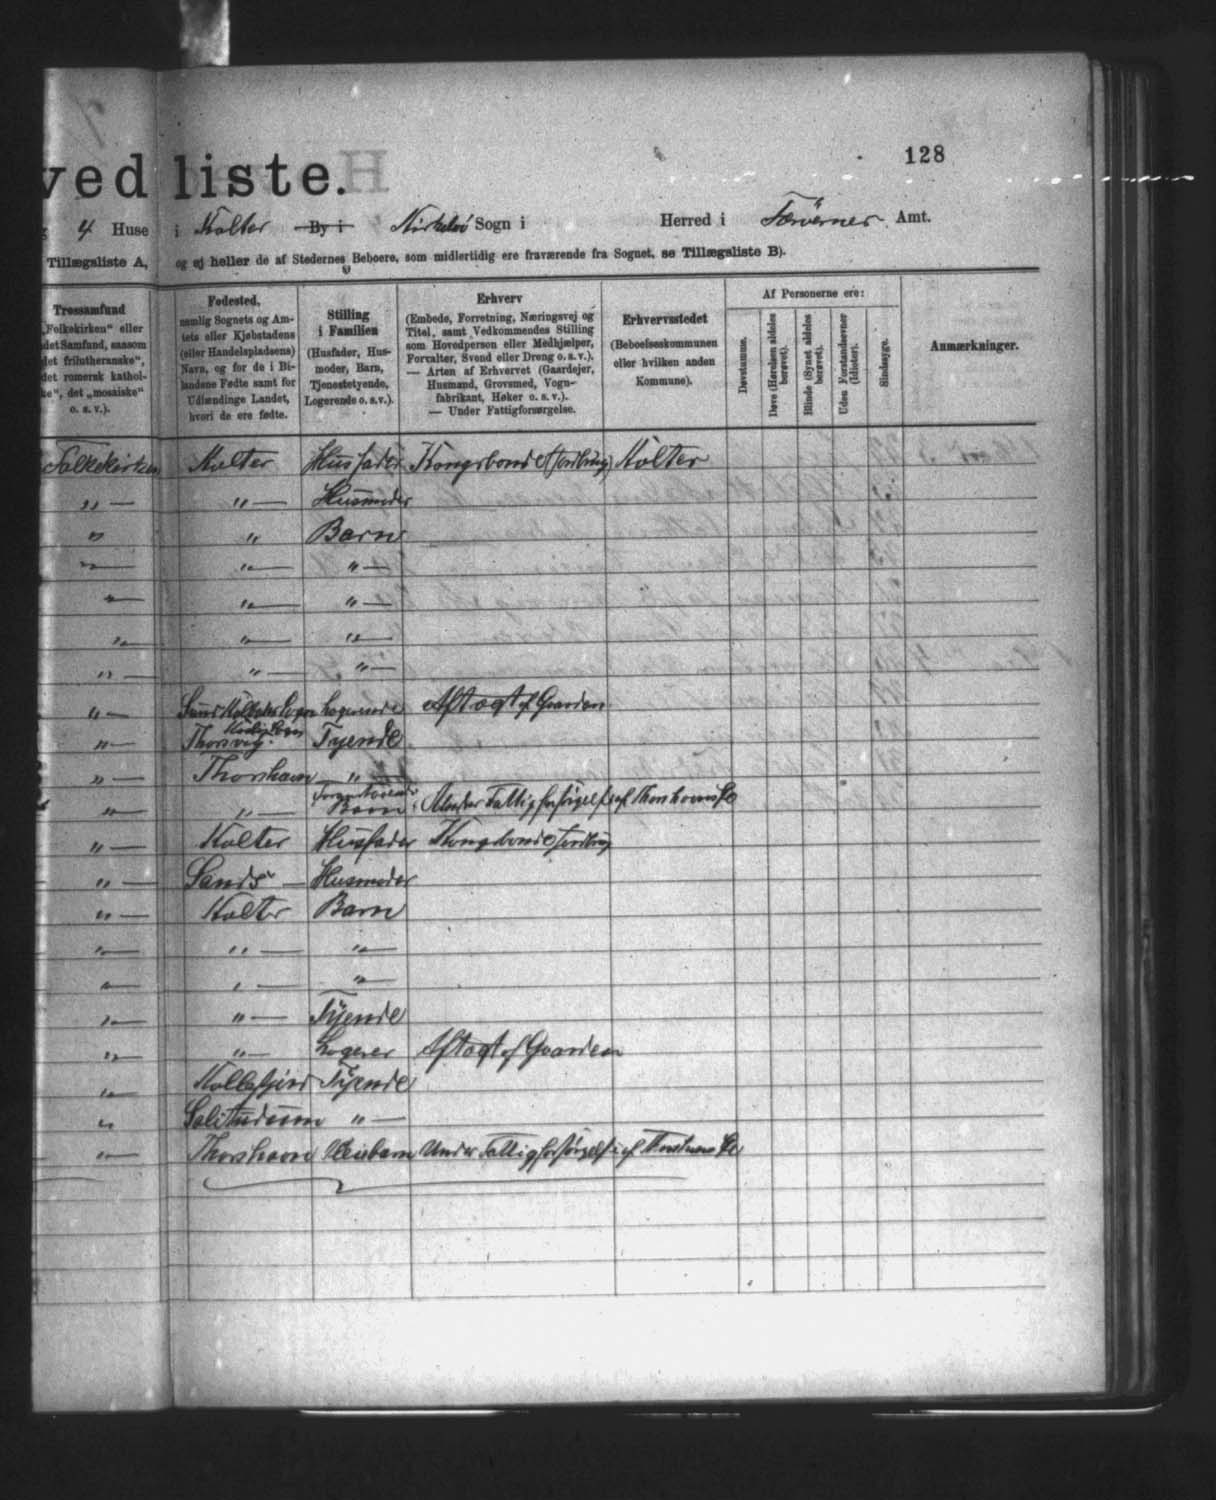 128
ved liste.
4 Huse i Kolter By i Kirkebø Sogn i Herred i Færøernes Amt.
Tillægsliste A, og ej heller de af Stedernes Beboere, som midlertidig ere fraværende fra Sognet, se Tillægsliste B).
Trossamfund
„Folkekirken“ eller
det Samfund, saasom
det frilutheranske“,
det romersk kathol-
ke“, det „mosaiske“
o. s. v.).
Fødested,
nemlig Sognets og Am-
tets eller Kjøbstadens
(eller Handelspladsens)
Navn, og for de i Bi-
landene Fødte samt for
Udlændinge Landet,
hvori de ere fødte.
Stilling
i Familien
(Husfader, Hus-
moder, Barn,
Tjenestetyende,
Logerende o. s. v.).
Erhverv
(Embede, Forretning, Næringsvej og
Titel, samt Vedkommendes Stilling
som Hovedperson eller Medhjælper,
Forvalter, Svend eller Dreng o. s. v.).
— Arten af Erhvervet (Gaardejer,
Husmand, Grovsmed, Vogn-
fabrikant, Høker o. s. v.).
— Under Fattigforsørgelse.
Erhvervsstedet
(Beboelseskommunen
eller hvilken anden
Kommune).
Af Personerne ere:
Døvstumme.
Døve (Hørelsen aldeles berøvet).
Blinde (Synet aldeles berøvet).
Uden Forstandsevner (Idioter).
Sindssyge.
Anmærkninger.
Folkekirken Kolter Husfader Kongsbonde Jordbrug Kolter
„ — „ — Husmoder
„ „ Barn
„ — „ — „ —
„ — „ — „ —
„ — „ — „ —
„ — „ — „ —
„ — Sund Sogn Logerende Aftægt af Gaarden
„ — Thorsvig Sogn Tyende
„ — Thorshavn „
„ — „ — Barn Under Fattigforsørgelse af Thorshavns
„ — Kolter Husfader Kongsbonde Jordbrug
„ — Sands — Husmoder
„ — Kolter Barn
„ — „ — „ —
„ — „ — „ —
„ — „ — Tyende
„ — „ — Logerer Aftægt af Gaarden
„ — Kollefjord Tyende
„ „ —
„ — Thorshavn Pleiebarn Under Fattigforsørgelse af Thorshavns